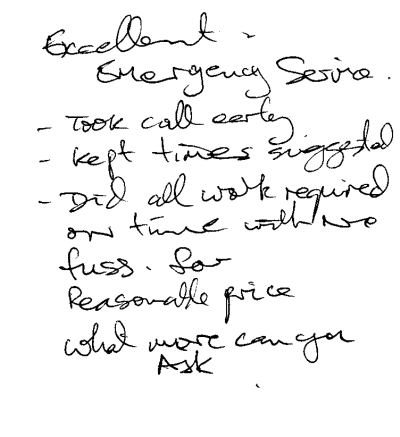 Excellent -
Emergency Service.
- Took call early
- kept times suggested
- Did all work required
on time with No
fuss. for
Reasonable price
what more can you
Ask